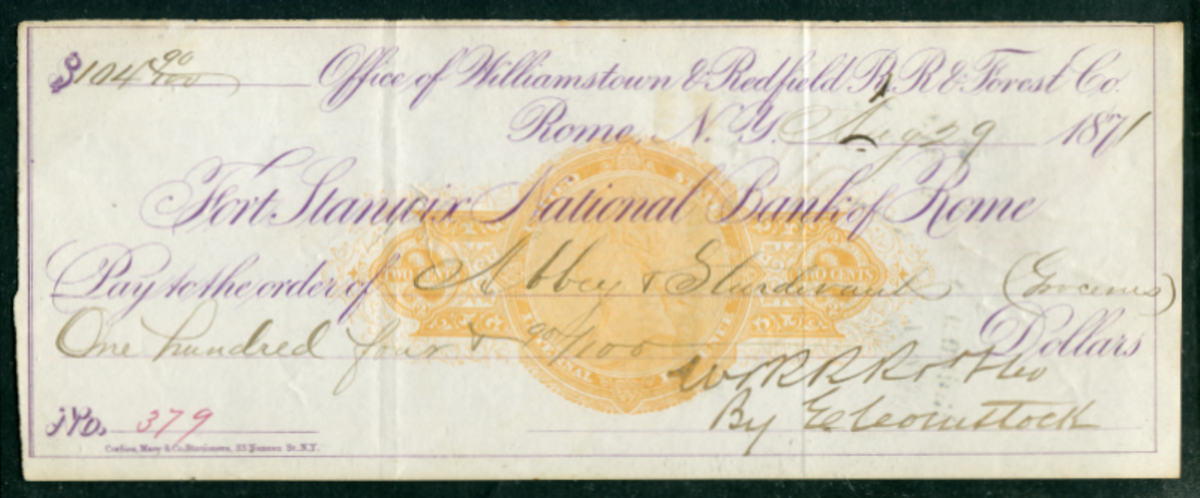 $104 90/100 Office of Williamstown & Redfield R.R & Forest Co.
Rome, N.Y. Aug 29 1871
Fort Stanwix National Bank of Rome
TWO CENTS TWO CENTS
Pay to the order of Abbey & Sturdevant (Groceries)
One hundred four & 90/100 Dollars
W & R R R & F Co
No. 379 By E Comstock
Stationers, 33 Nassau St. N.Y.